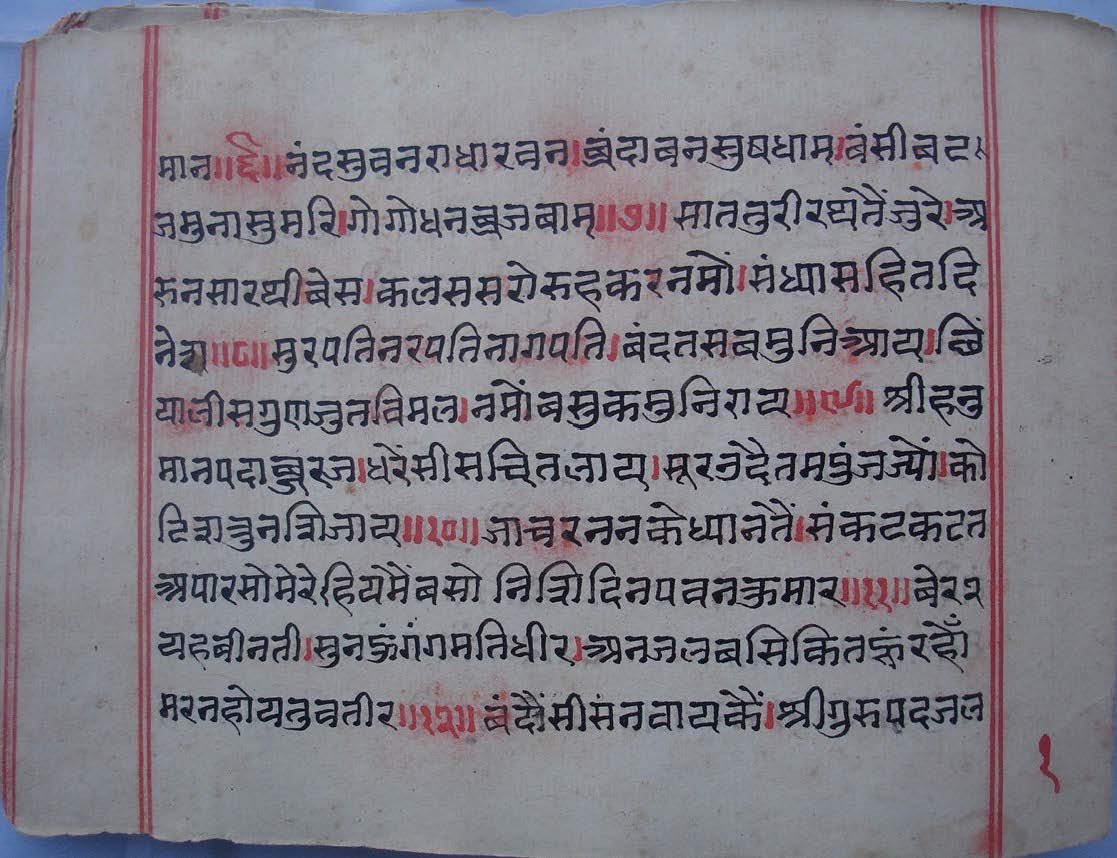 मान॥६॥नंदसुवनराधारवन।ब्रंदाबनसुषधाम।बंसीबट।
जमुनासुमरि।गोगोधनब्रजबाम॥७॥ साततुरीरथतैंजुरे।अ
रुनसारथीबेस।कलससरोरुहकरनमों।संध्यासहितदि
नेश॥८॥सुरपतिनरपतिनागपति।बंदतसबमुनिआय।छि
यालीसगुणजुतविमल।नमोंबसुकमुनिराय॥९॥ श्रीहनु
मानपदाब्जरज।धरैंसीसचितलाय।सूरजउदैतमपुंजज्यों।को
टिशत्रुनशिजाय॥१०॥जाचरननकेध्यानतैं।संकटकटत
अपारसोमेरेहियमेंबसो निशिदिनपवनकुमार॥११॥बेर२
यहबीनती।सुनऊंगंगमतिधीर।अनजलबसिकितहूंरहों
मरनहोयतुवतीर॥१२॥बंदौंसीसनवायकैं।श्रीगुरुपदजल
१